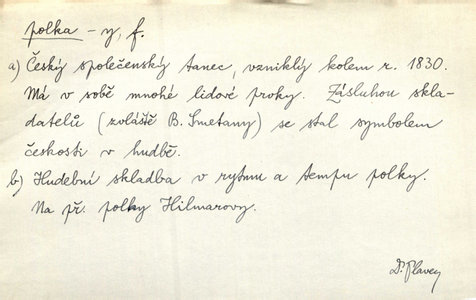 polka – y, f.
a) Český společenský tanec, vzniklý kolem r. 1830.
Má v sobě mnohé lidové prvky. Zásluhou skla-
datelů (zvláště B. Smetany) se stal symbolem
českosti v hudbě.
b) Hudební skladba v rytmu a tempu polky.
Na př. polky Hilmarovy.
Dr. Plavec